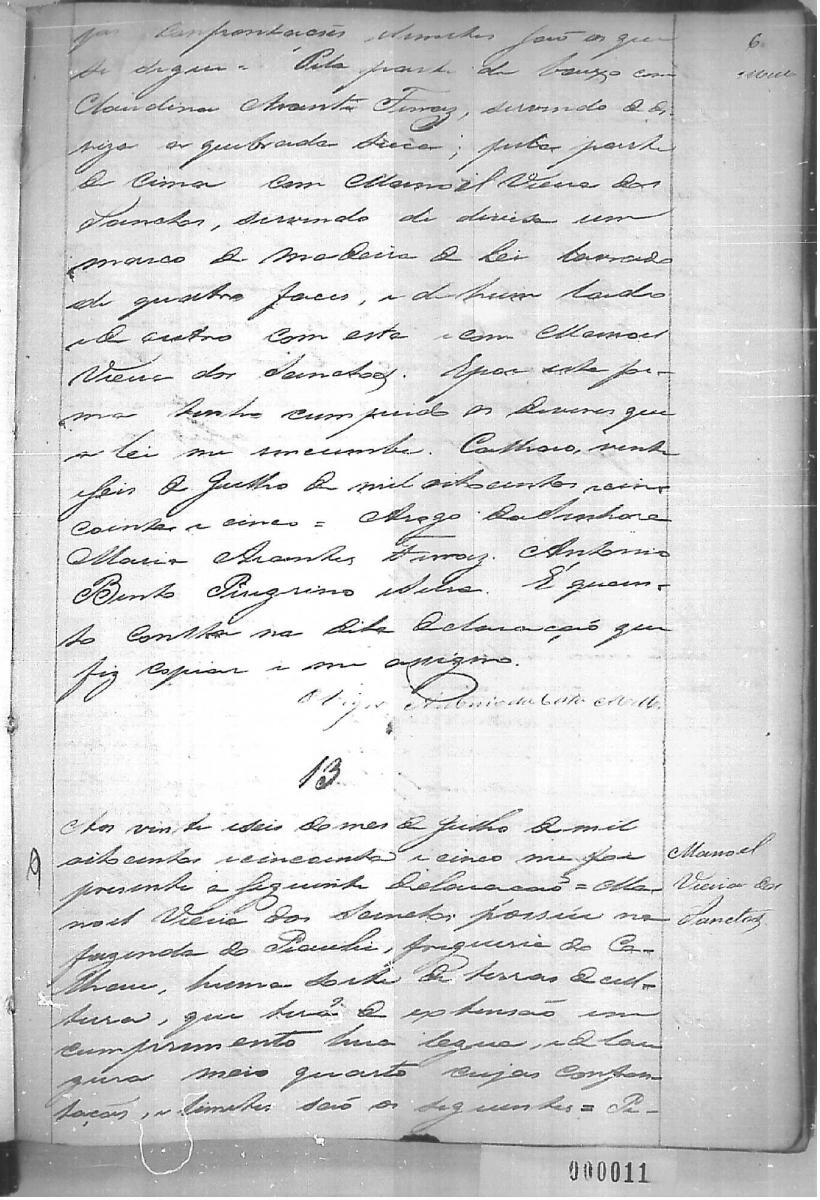 jas confrontacões e limites saõ os que
se segue = Pela parte de baixo com
Claudina Arantes Ferraz, servindo de de
viza a quebrada Seca; pela parte
de cima com Manoel Vieira dos
Sanctos, servindo de diviza um
marco de madeira de Lei lavrado
de quatro faces, e de hum lado
e de outro com esta e com Manoel
Vieira dos Sanctos. E por esta for-
ma tenho cumprido os deveres que
a Lei me incumbe. Calhao, vinte
e Seis de Julho de mil oitocentos e cin-
coenta e cinco = A rogo da Senhora
Maria Arantes Ferraz. Antonio
Bento Piregrino e Silva. É quan-
to contem na dita declaracaõ que
fiz copiar e me assigno.
O Vigr.o Antonio da Costa
13
Aos vinte e seis do mes de Julho de mil
oitocentos e cincoenta e cinco me foi
presente a Seguinte declaracaõ = Ma-
noel Vieira dos Sanctos possue na
fazenda do Piauhi, freguesia do Ca-
lhau, huma sorte de terras de cul-
tura, que terá de extensão em
cumprimento hua legua, e de lar
gura meio quarto cujas confron-
tações, e limites saõ os seguintes = Pe-
6
Manoel
Vieira dos
Sanctos
9
000011